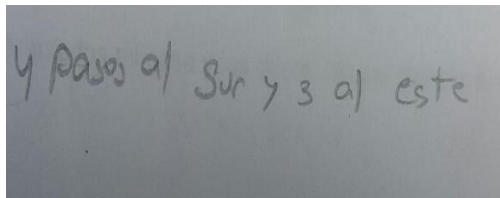 4 pasos al sur y 3 al este